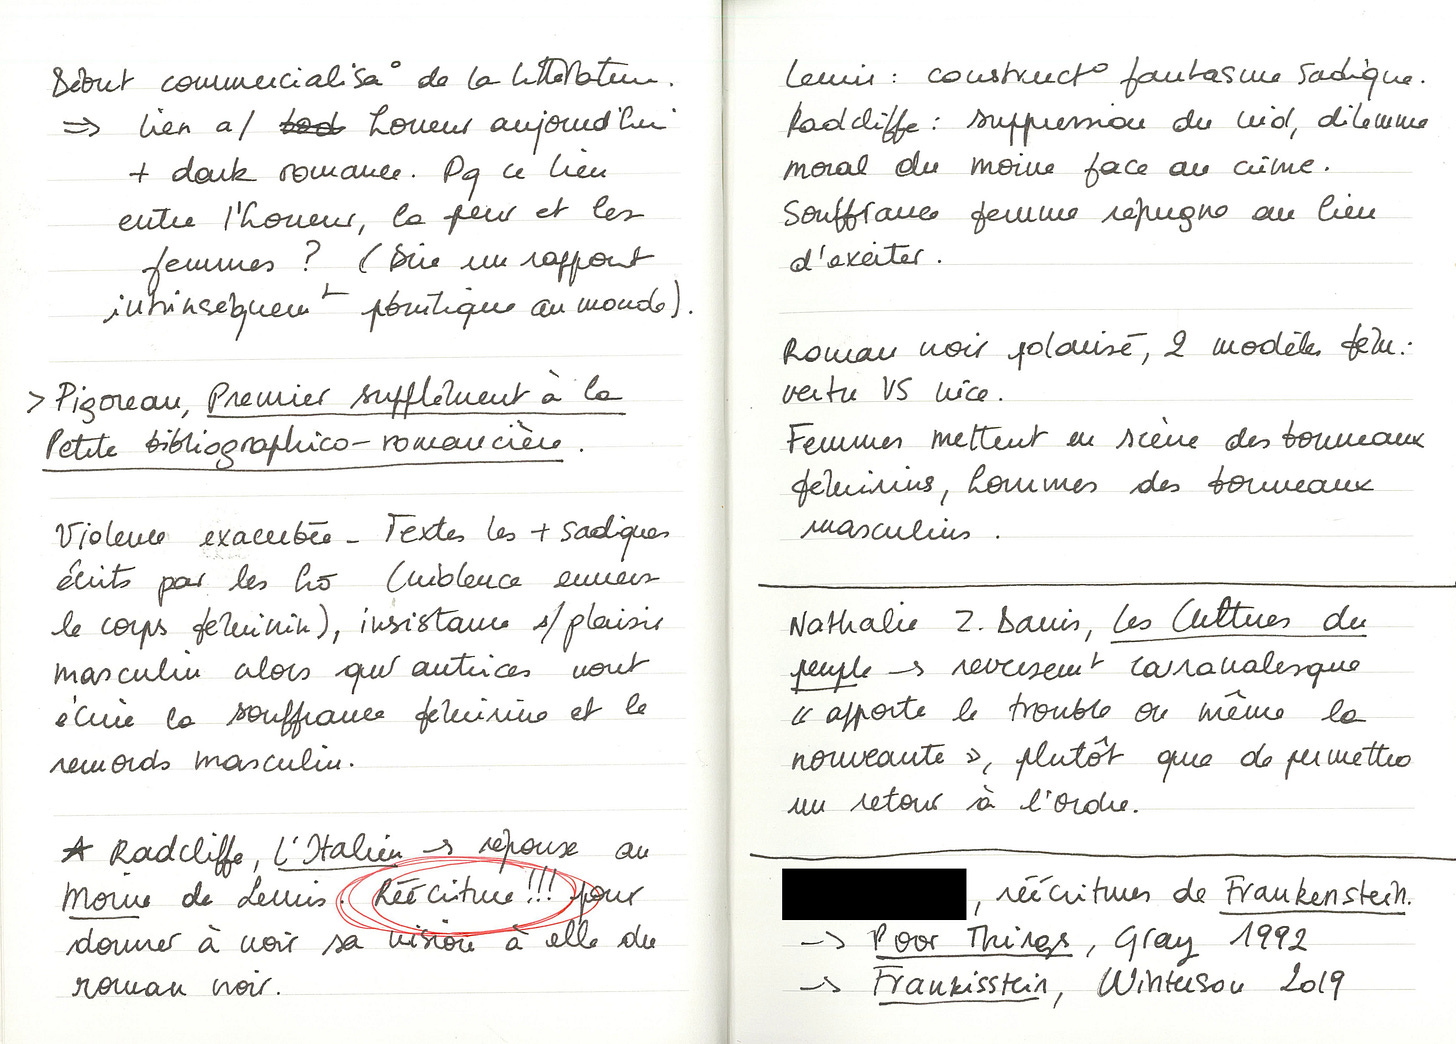 Début commercialisa° de la littérature.
=> lien a/ horreur aujourd'hui
+ dark romance. Pq ce lien
entre l'horreur, la peur et les
femmes ? (Dire un rapport
intrinsèquemt politique au monde).
> Pigoreau, Premier supplément à la
Petite bibliographico-romancière.
Violence exacerbée - Textes les + sadiques
écrits par les ho (violence envers
le corps féminin), insistance s/ plaisir
masculin alors qu'autrices vont
écrire la souffrance féminine et le
remords masculin.
Radcliffe, L'Italien -> réponse au
Moine de Lewis. Réécriture !!! pour
donner à voir sa vision à elle du
roman noir.
Lewis : construct° fantasme sadique.
Radcliffe : suppression du viol, dilemme
moral du moine face au crime.
Souffrance femme répugne au lieu
d'exciter.
Roman noir polarisé, 2 modèles fém. :
vertu VS vice.
Femmes mettent en scène des bourreaux
féminins, hommes des bourreaux
masculins.
Nathalie Z. Davis, Les Cultures du
peuple -> reversemt carnavalesque
« apporte le trouble ou même la
nouveauté », plutôt que de permettre
un retour à l'ordre.
, réécritures de Frankenstein.
-> Poor Things, Gray 1992
-> Frankisstein, Winterson 2019